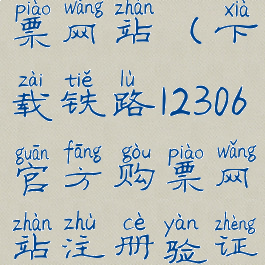 piào wǎng zhàn xià
票网站（下
zài tiě lù
载铁路12306
guān fāng gòu piào wǎng
官方购票网
zhàn zhù cè yàn zhèng
站注册验证